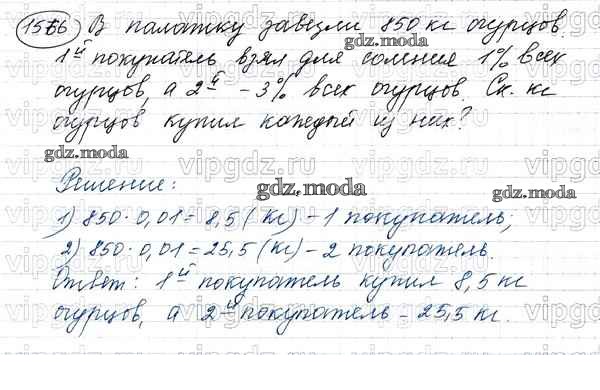 1566 В палатку завезли 850 кг огурцов.
gdz.moda
1й покупатель взял для соления 1% всех
огурцов, а 2й - 3% всех огурцов. Ск. кг
огурцов купил каждый из них?
gdz.moda
Решение:
gdz.moda
gdz.moda
1) 850 · 0,01 = 8,5 (кг) - 1 покупатель;
2) 850 · 0,01 = 25,5 (кг) - 2 покупатель.
Ответ: 1й покупатель купил 8,5 кг
огурцов, а 2й покупатель - 25,5 кг.
vipgdz.ru